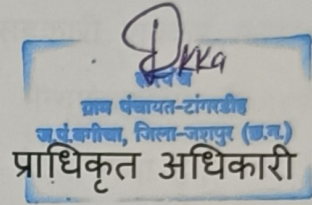 सरपंच
ग्राम पंचायत-टांगरडीह
ज.पं.बगीचा, जिला-जशपुर (छ.ग.)
प्राधिकृत अधिकारी